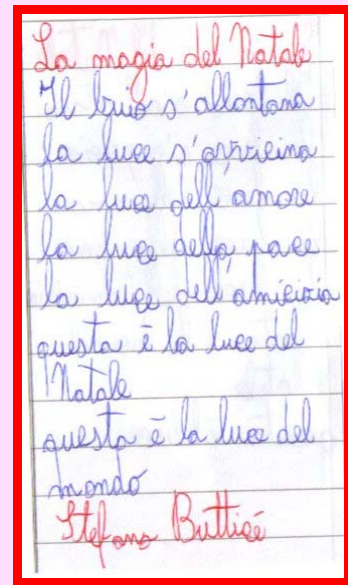 La magia del Natale
Il buio s'allontana
la luce s'avvicina
la luce dell'amore
la luce della pace
la luce dell'amicizia
questa è la luce del
Natale
questa è la luce del
mondo
Stefano Butticé